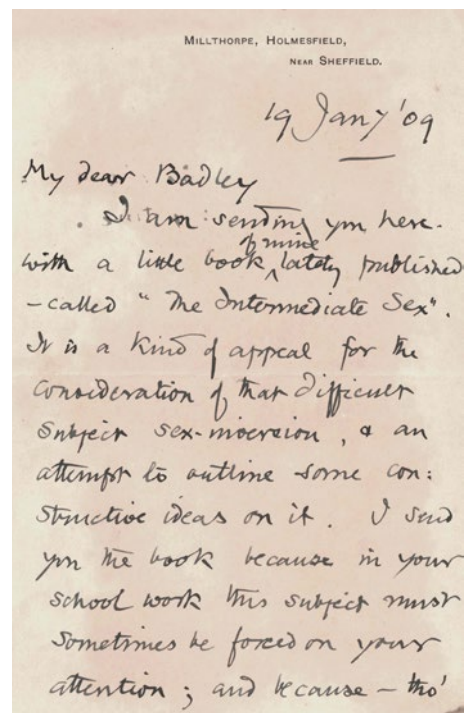 MILLTHORPE, HOLMESFIELD,
NEAR SHEFFIELD.
19 Jany '09
My dear Badley
I am sending you here-
of mine
with a little book ^ lately published
- called "The Intermediate Sex".
It is a kind of appeal for the
consideration of that difficult
subject sex-inversion, & an
attempt to outline some con:
structive ideas on it. I send
you the book because in your
school work this subject must
sometimes be forced on your
attention; and because - tho'